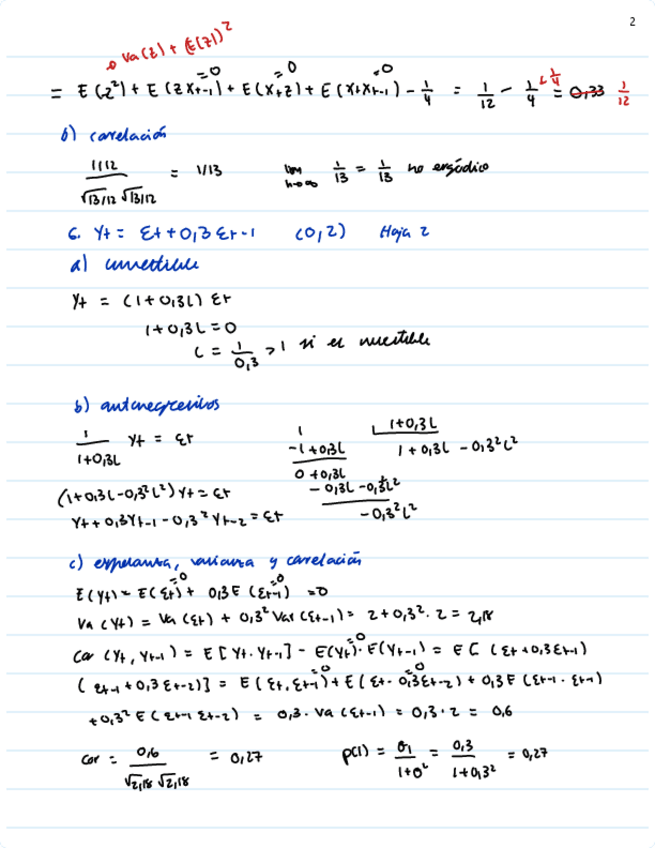 2
→ Va(z) + (E(z))²
= E(z²) + E(zXt-1)=0 + E(Xtz)=0 + E(XtXt-1)=0 - 1/4 = 1/12 - 1/4 + 1/4 = 0,33 1/12
b) correlación
1/12 / √13/12 √13/12 = 1/13 lim h→∞ 1/13 = 1/13 no ergódico
6. Yt = Et + 0,3 Et-1 (0,2) Hoja 2
a) invertible
Yt = (1+0,3L) Et
1+0,3L = 0
L = 1/0,3 > 1 si es invertible
b) autorregresivos
1/(1+0,3L) Yt = Et
1 | 1+0,3L
-1+0,3L 1+0,3L - 0,3²L²
0+0,3L
- 0,3L - 0,3L²
- 0,3²L²
(1+0,3L-0,3²L²) Yt = Et
Yt + 0,3Yt-1 - 0,3² Yt-2 = Et
c) esperanza, varianza y correlación
E(Yt) = E(Et)=0 + 0,3 E(Et-1)=0 = 0
Va(Yt) = Va(Et) + 0,3² Var(Et-1) = 2+0,3²·2 = 2,18
Cov(Yt, Yt-1) = E[Yt·Yt-1] - E(Yt)=0·E(Yt-1) = E[(Et+0,3Et-1)
(Et-1+0,3Et-2)] = E(Et, Et-1)=0 + E(Et·0,3Et-2)=0 + 0,3E(Et-1·Et-1)
+0,3² E(Et-1 Et-2) = 0,3·Va(Et-1) = 0,3·2 = 0,6
Cor = 0,6 / √2,18 √2,18 = 0,27 p(1) = θ1/1+θ² = 0,3/1+0,3² = 0,27